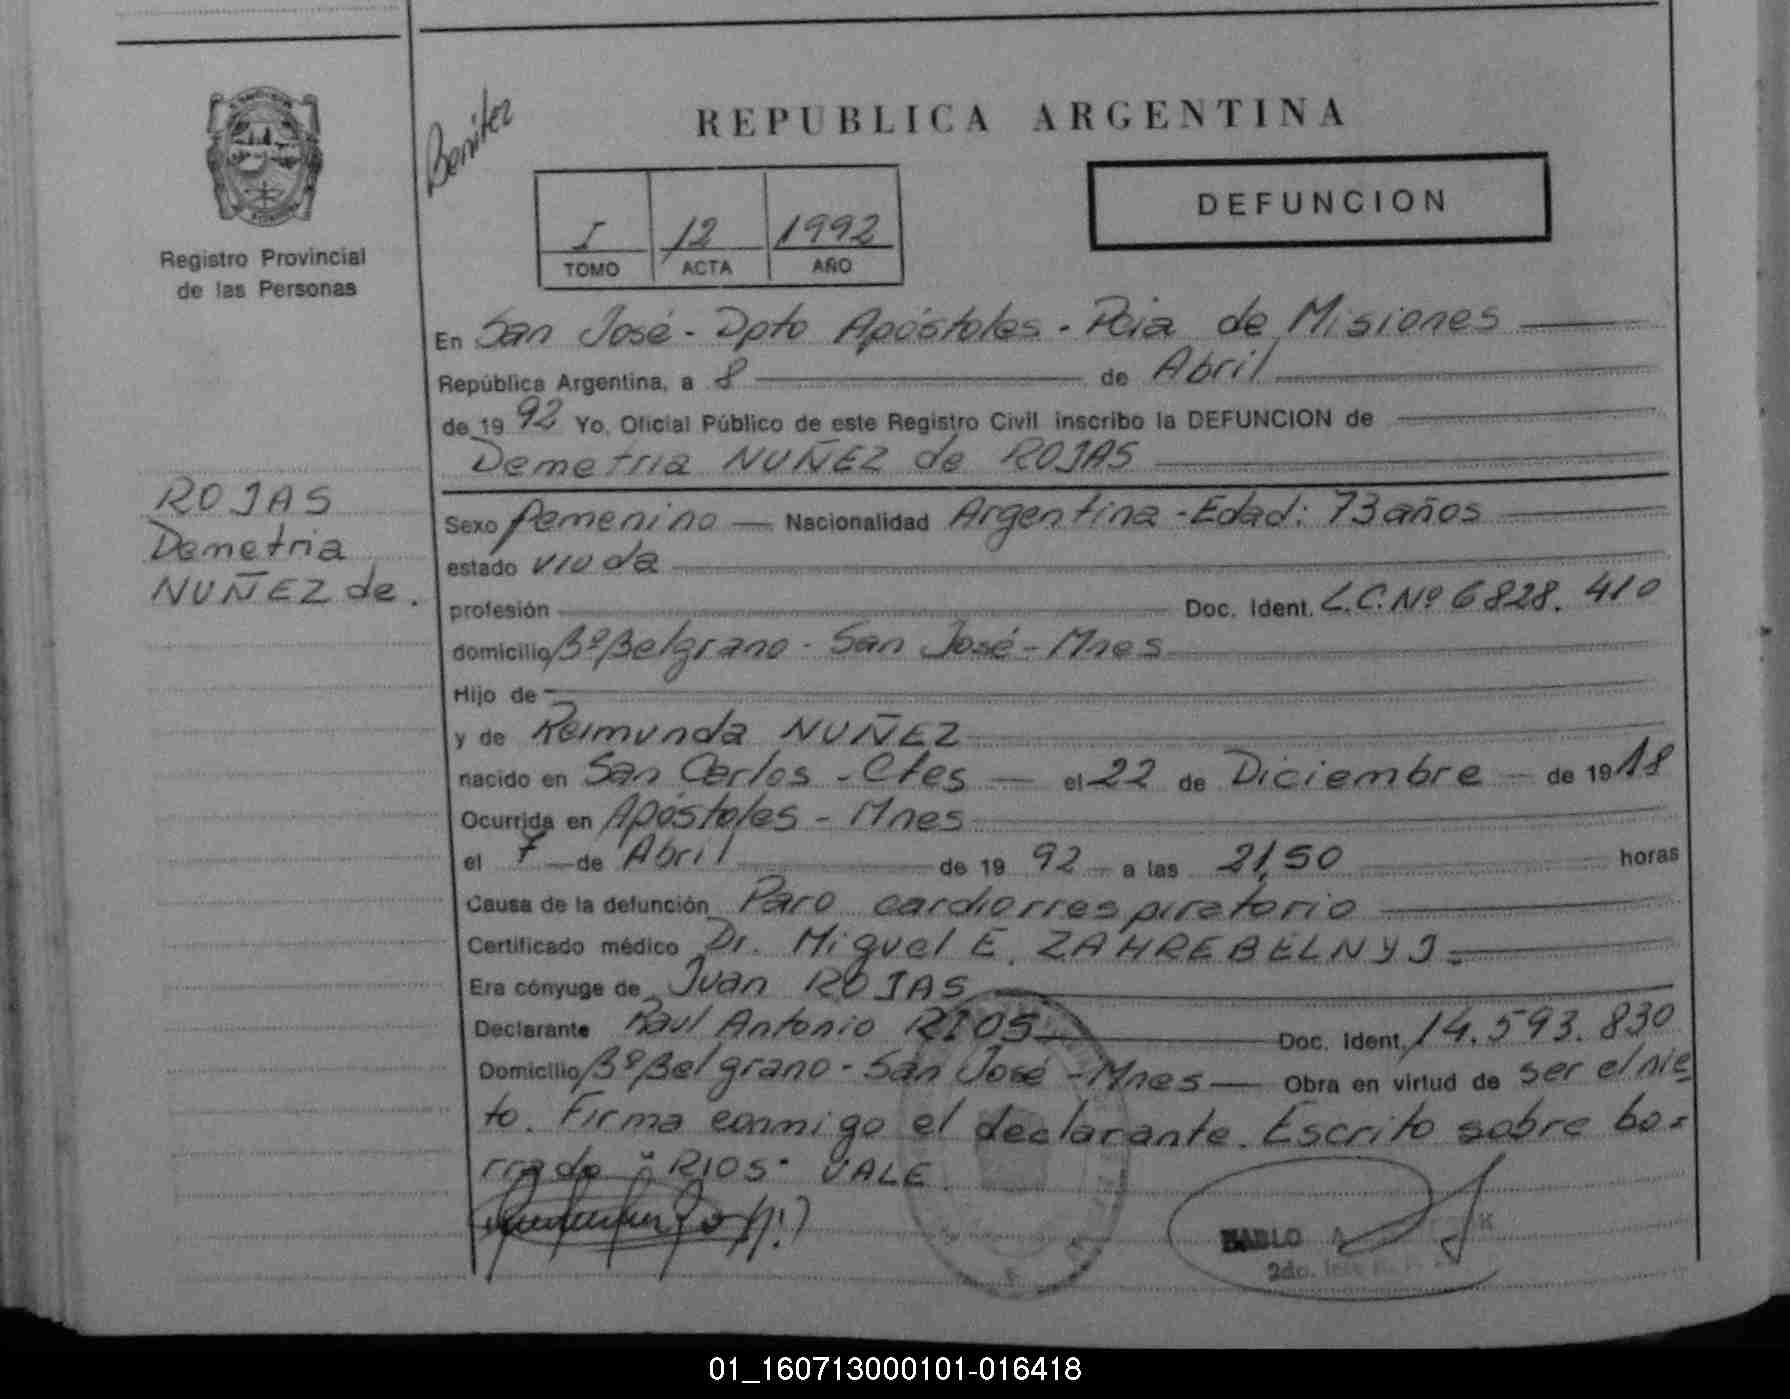 REPUBLICA ARGENTINA
Benitez
DEFUNCION
I 12 1992
TOMO ACTA AÑO
Registro Provincial
de las Personas
En San José - Dpto Apóstoles - Pcia de Misiones
República Argentina, a 8 de Abril
de 19 92 Yo, Oficial Público de este Registro Civil inscribo la DEFUNCION de
Demetria NUÑEZ de ROJAS
ROJAS
Demetria
NUÑEZ de.
Sexo femenino Nacionalidad Argentina - Edad: 73 años
estado viuda
profesión Doc. Ident. L.C. Nº 6828.410
domicilio Bº Belgrano - San José - Mnes
Hijo de
y de Reimunda NUÑEZ
nacido en San Carlos - Ctes el 22 de Diciembre de 19 18
Ocurrida en Apóstoles - Mnes
el 7 de Abril de 19 92 a las 21,50 horas
Causa de la defunción Paro cardiorrespiratorio
Certificado médico Dr. Miguel E. ZAHREBELNYJ.
Era cónyuge de Juan ROJAS
Declarante Raul Antonio RIOS Doc. Ident. 14.593.830
Domicilio Bº Belgrano - San José - Mnes Obra en virtud de ser el nie
to. Firma conmigo el declarante. Escrito sobre bo-
rrado "RIOS" VALE
PABLO A
2do.
01_160713000101-016418